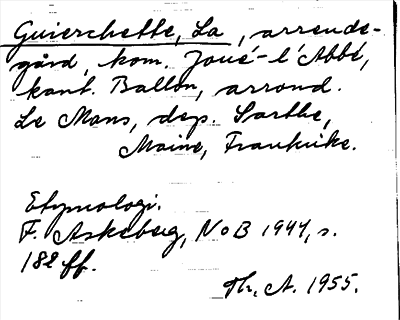 Guierchette, La, arrende-
gård, kom. Joué-l'Abbé,
kant. Ballon, arrond.
Le Mans, dep. Sarthe,
Maine, Frankrike.
Etymologi.
F. Askeberg, NoB 1944, s.
182 ff.
Th. A. 1955.